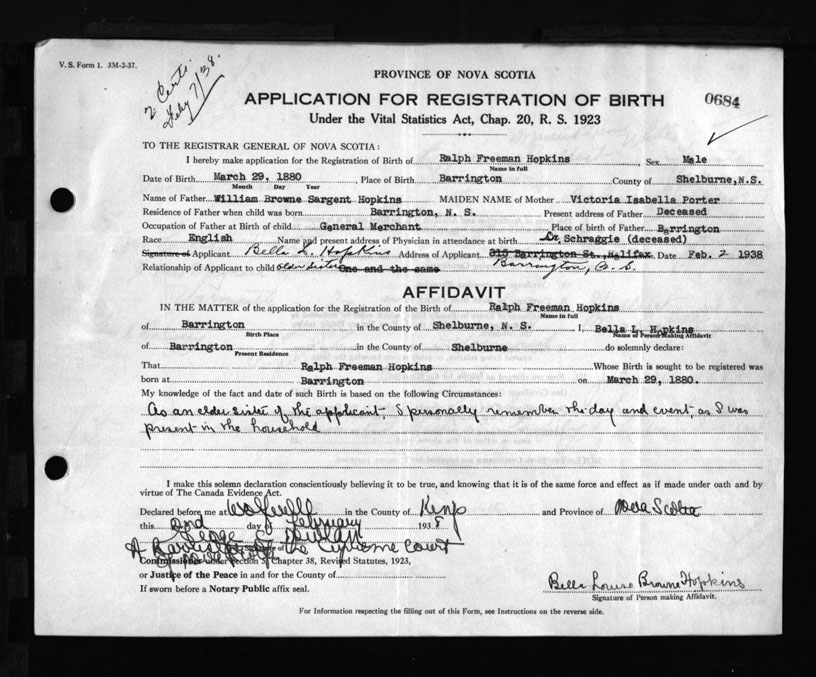 V. S. Form 1. 3M-2-37.
2 Certs.
Feby 7/38.
PROVINCE OF NOVA SCOTIA
APPLICATION FOR REGISTRATION OF BIRTH 0684
Under the Vital Statistics Act, Chap. 20, R. S. 1923
TO THE REGISTRAR GENERAL OF NOVA SCOTIA:
I hereby make application for the Registration of Birth of Ralph Freeman Hopkins, Sex Male
Name in full
Date of Birth March 29, 1880, Place of Birth Barrington County of Shelburne, N.S.
Month Day Year
Name of Father William Browne Sargent Hopkins MAIDEN NAME of Mother Victoria Isabella Porter
Residence of Father when child was born Barrington, N. S. Present address of Father Deceased
Occupation of Father at Birth of child General Merchant Place of birth of Father Barrington
Race English Name and present address of Physician in attendance at birth Dr. Schraggie (deceased)
Signature of Applicant Bella L. Hopkins Address of Applicant Barrington St., Halifax Date Feb. 2 1938
Barrington, N. S.
Relationship of Applicant to child older sister One and the same
AFFIDAVIT
IN THE MATTER of the application for the Registration of the Birth of Ralph Freeman Hopkins
Name in full
of Barrington in the County of Shelburne, N. S. I, Bella L. Hopkins
Birth Place Name of Person Making Affidavit
of Barrington in the County of Shelburne do solemnly declare:
Present Residence
That Ralph Freeman Hopkins Whose Birth is sought to be registered was
born at Barrington on March 29, 1880.
My knowledge of the fact and date of such Birth is based on the following Circumstances:
As an elder sister of the applicant, I personally remember the day and event, as I was
present in the household
I make this solemn declaration conscientiously believing it to be true, and knowing that it is of the same force and effect as if made under oath and by
virtue of The Canada Evidence Act.
Declared before me at Wolfville in the County of Kings and Province of Nova Scotia
this 2nd day of February 1938
A Barrister of the Supreme Court
Commissioner under Section 5, Chapter 38, Revised Statutes, 1923,
or Justice of the Peace in and for the County of
If sworn before a Notary Public affix seal.
Bella Louise Browne Hopkins
Signature of Person making Affidavit.
For Information respecting the filling out of this Form, see Instructions on the reverse side.